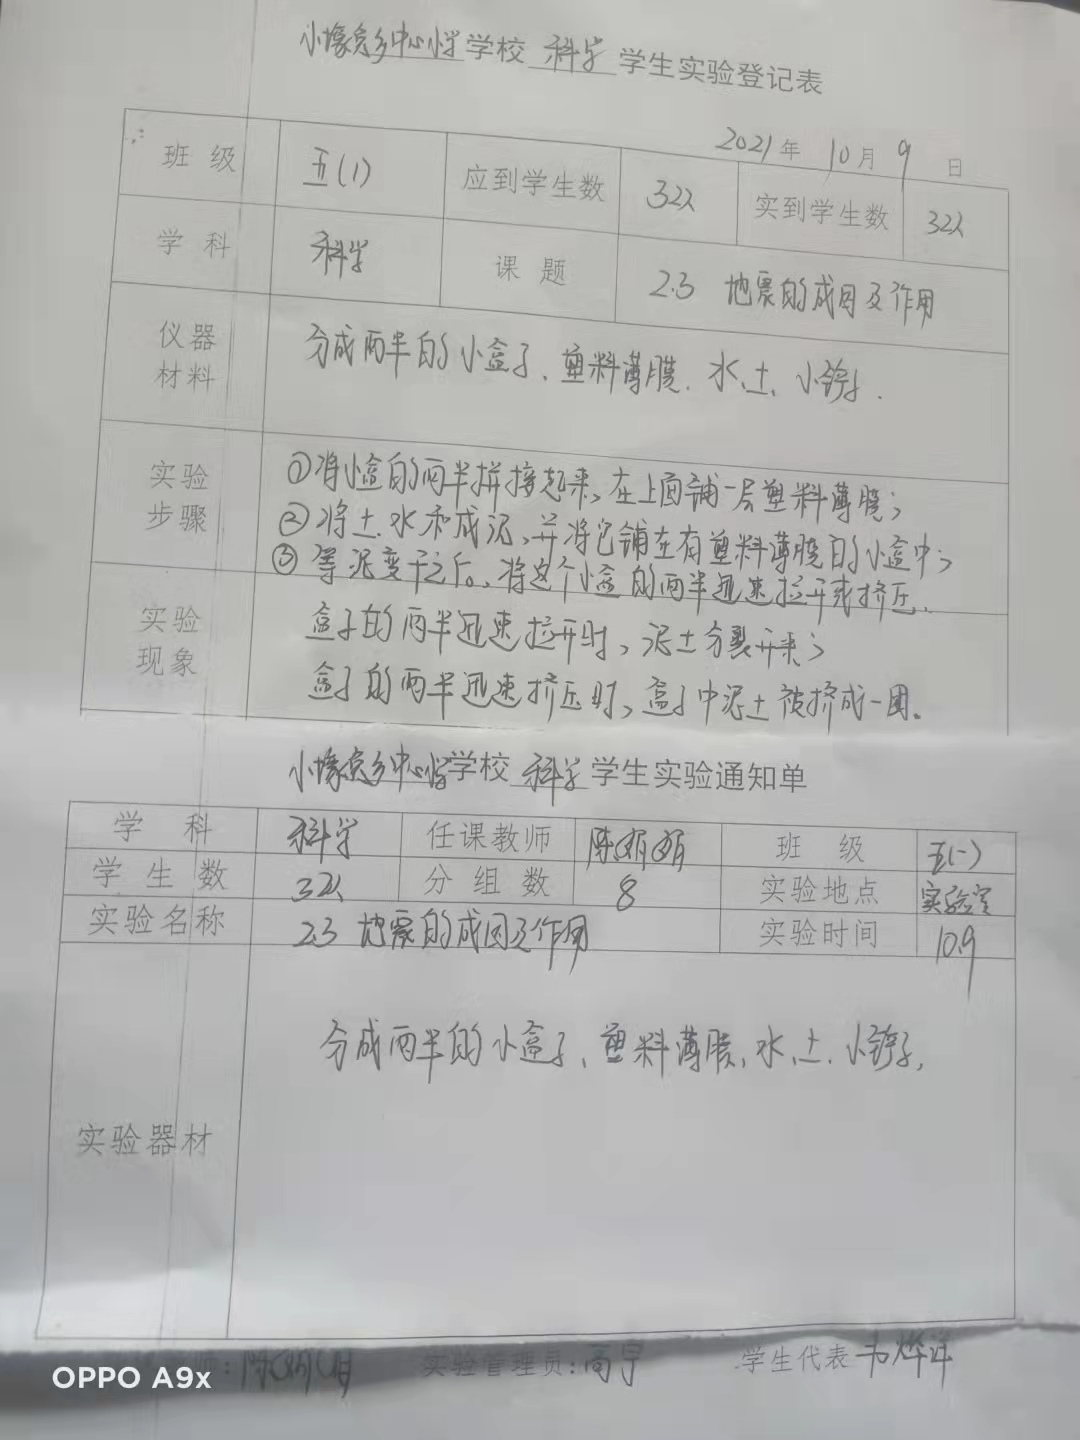 中心小学学校 科学 学生实验登记表
2021年 10月 9 日
班 级 五(1) 应到学生数 32人 实到学生数 32人
学 科 科学 课 题 2.3 地震的成因及作用
仪器材料 分成两半的小盒子、塑料薄膜、水、土、小铲子.
实验步骤 ①将小盒的两半拼接起来,在上面铺一层塑料薄膜;
②将土、水和成泥,并将它铺在有塑料薄膜的小盒中;
③等泥变干之后。将这个小盒的两半迅速拉开或挤压.
实验现象 盒子的两半迅速拉开时,泥土分裂开来;
盒子的两半迅速挤压时,盒子中泥土被挤成一团。
中心小学学校 科学 学生实验通知单
学 科 科学 任课教师 陈娟娟 班 级 五(一)
学 生 数 32人 分 组 数 8 实验地点 实验室
实验名称 2.3 地震的成因及作用 实验时间 10.9
实验器材 分成两半的小盒子、塑料薄膜,水、土、小铲子,
师: 陈娟娟 实验管理员:高宇 学生代表
OPPO A9x